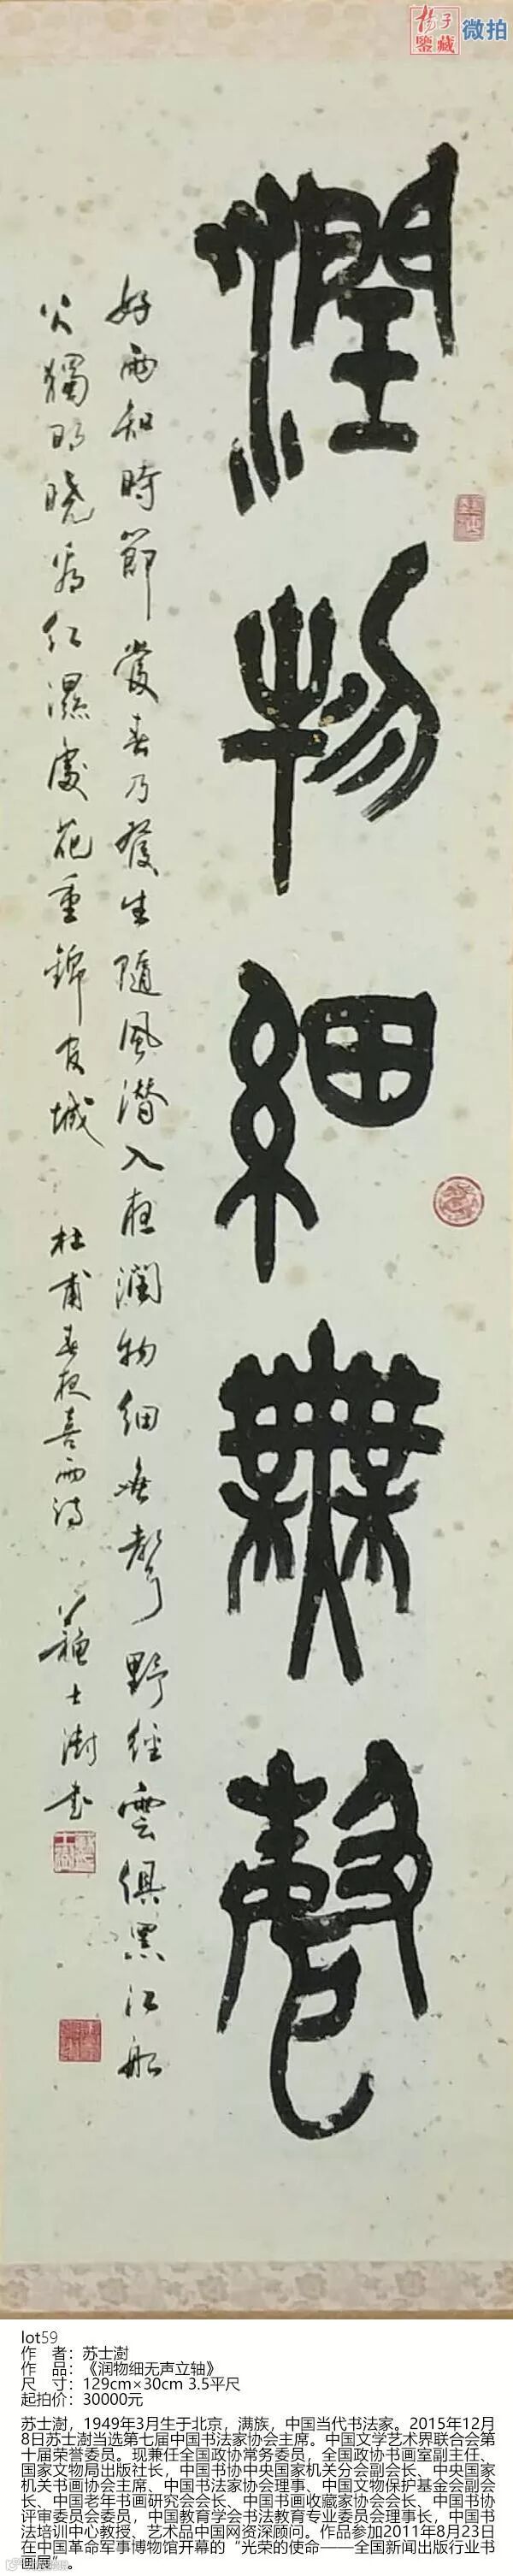 扬子鉴藏
微拍
润物细無聲
好雨知時節當春乃發生隨風潜入夜潤物細無聲野徑雲俱黑江船
火獨明曉看红濕處花重錦官城 杜甫春夜喜雨诗 苏士澍书
lot59
作 者：苏士澍
作 品：《润物细无声立轴》
尺 寸：129cm×30cm 3.5平尺
起拍价：30000元
苏士澍，1949年3月生于北京，满族，中国当代书法家。2015年12月
8日苏士澍当选第七届中国书法家协会主席。中国文学艺术界联合会第
十届荣誉委员。现兼任全国政协常务委员，全国政协书画室副主任、
国家文物局出版社长，中国书协中央国家机关分会副会长、中央国家
机关书画协会主席、中国书法家协会理事、中国文物保护基金会副会
长、中国老年书画研究会会长、中国书画收藏家协会会长、中国书协
评审委员会委员，中国教育学会书法教育专业委员会理事长，中国书
法培训中心教授，艺术品中国网资深顾问。作品参加2011年8月23日
在中国革命军事博物馆开幕的“光荣的使命——全国新闻出版行业书
画展”。